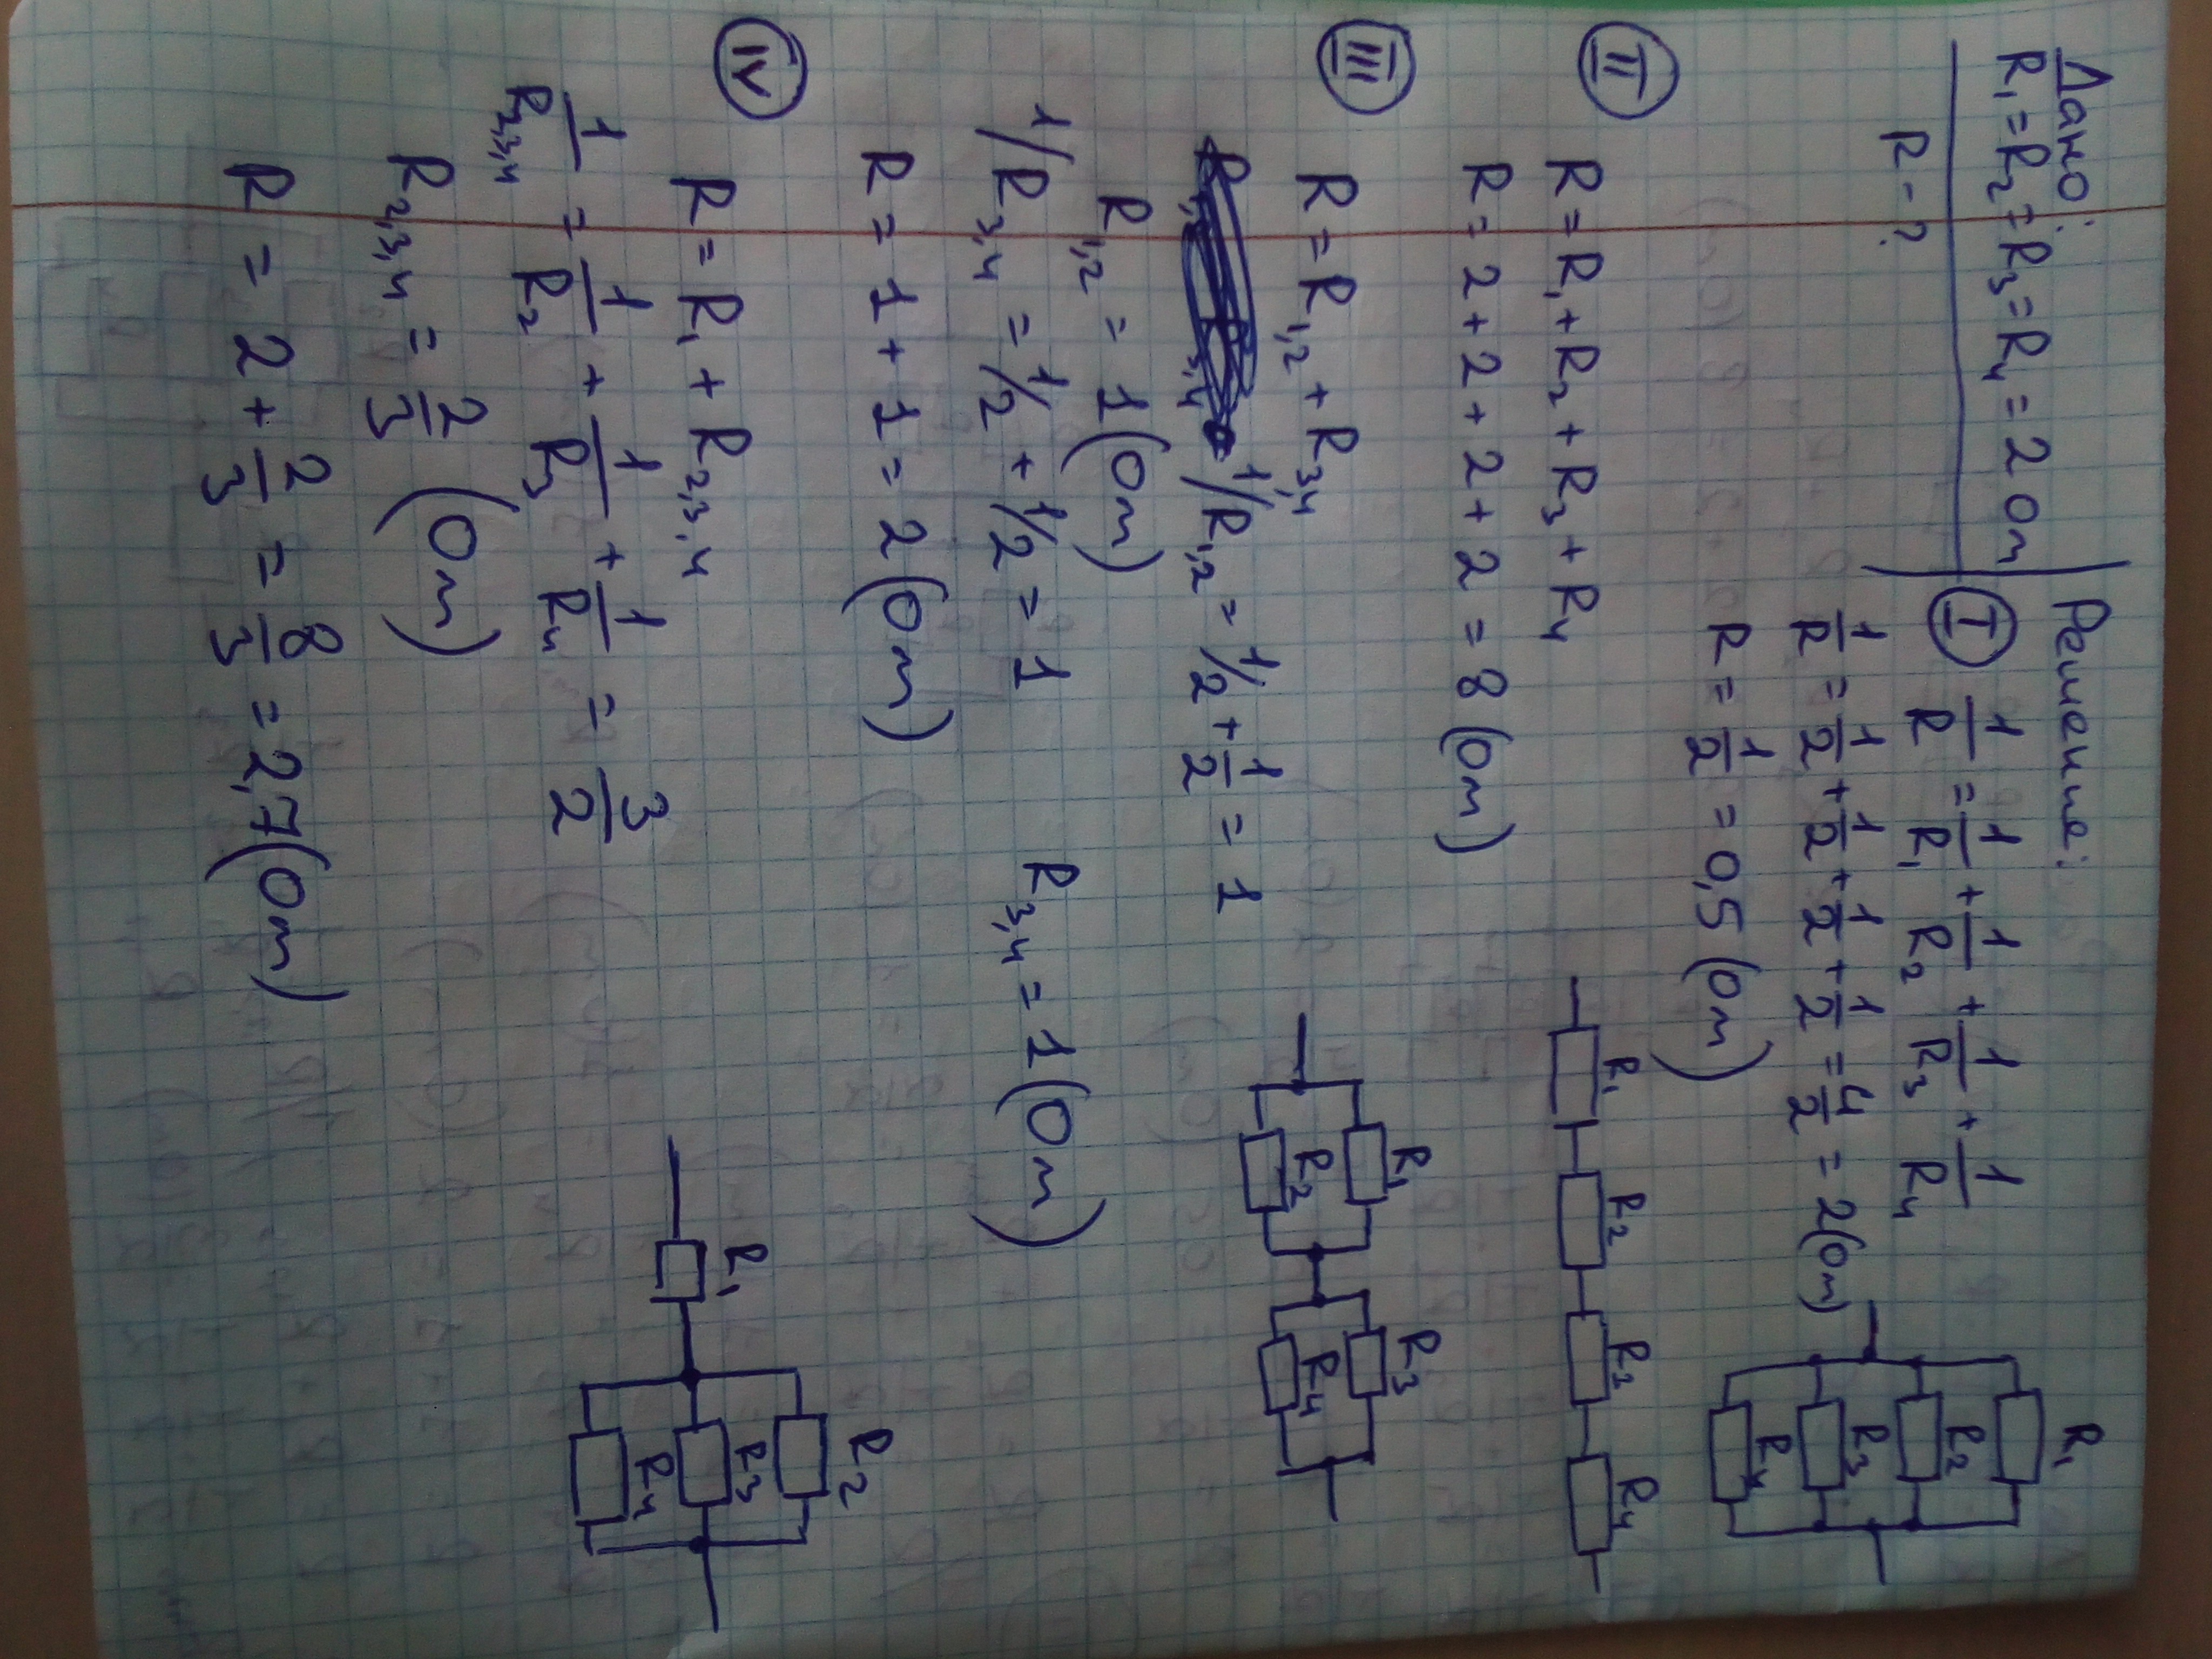 Дано:
R₁=R₂=R₃=R₄=2 Ом
R-?
Решение:
I 1/R = 1/R₁ + 1/R₂ + 1/R₃ + 1/R₄
1/R = 1/2 + 1/2 + 1/2 + 1/2 = 4/2 = 2(Ом)
R = 1/2 = 0,5 (Ом)
R₁
R₂
R₃
R₄
II R=R₁+R₂+R₃+R₄
R=2+2+2+2=8(Ом)
R₁ R₂ R₃ R₄
III R=R₁,₂+R₃,₄
1/R₁,₂=1/2+1/2=1
R₁,₂=1(Ом)
1/R₃,₄=1/2+1/2=1 R₃,₄=1(Ом)
R=1+1=2(Ом)
R₁ R₃
R₂ R₄
IV R=R₁+R₂,₃,₄
1/R₂,₃,₄ = 1/R₂ + 1/R₃ + 1/R₄ = 3/2
R₂,₃,₄ = 2/3 (Ом)
R = 2 + 2/3 = 8/3 = 2,7(Ом)
R₂
R₁ R₃
R₄